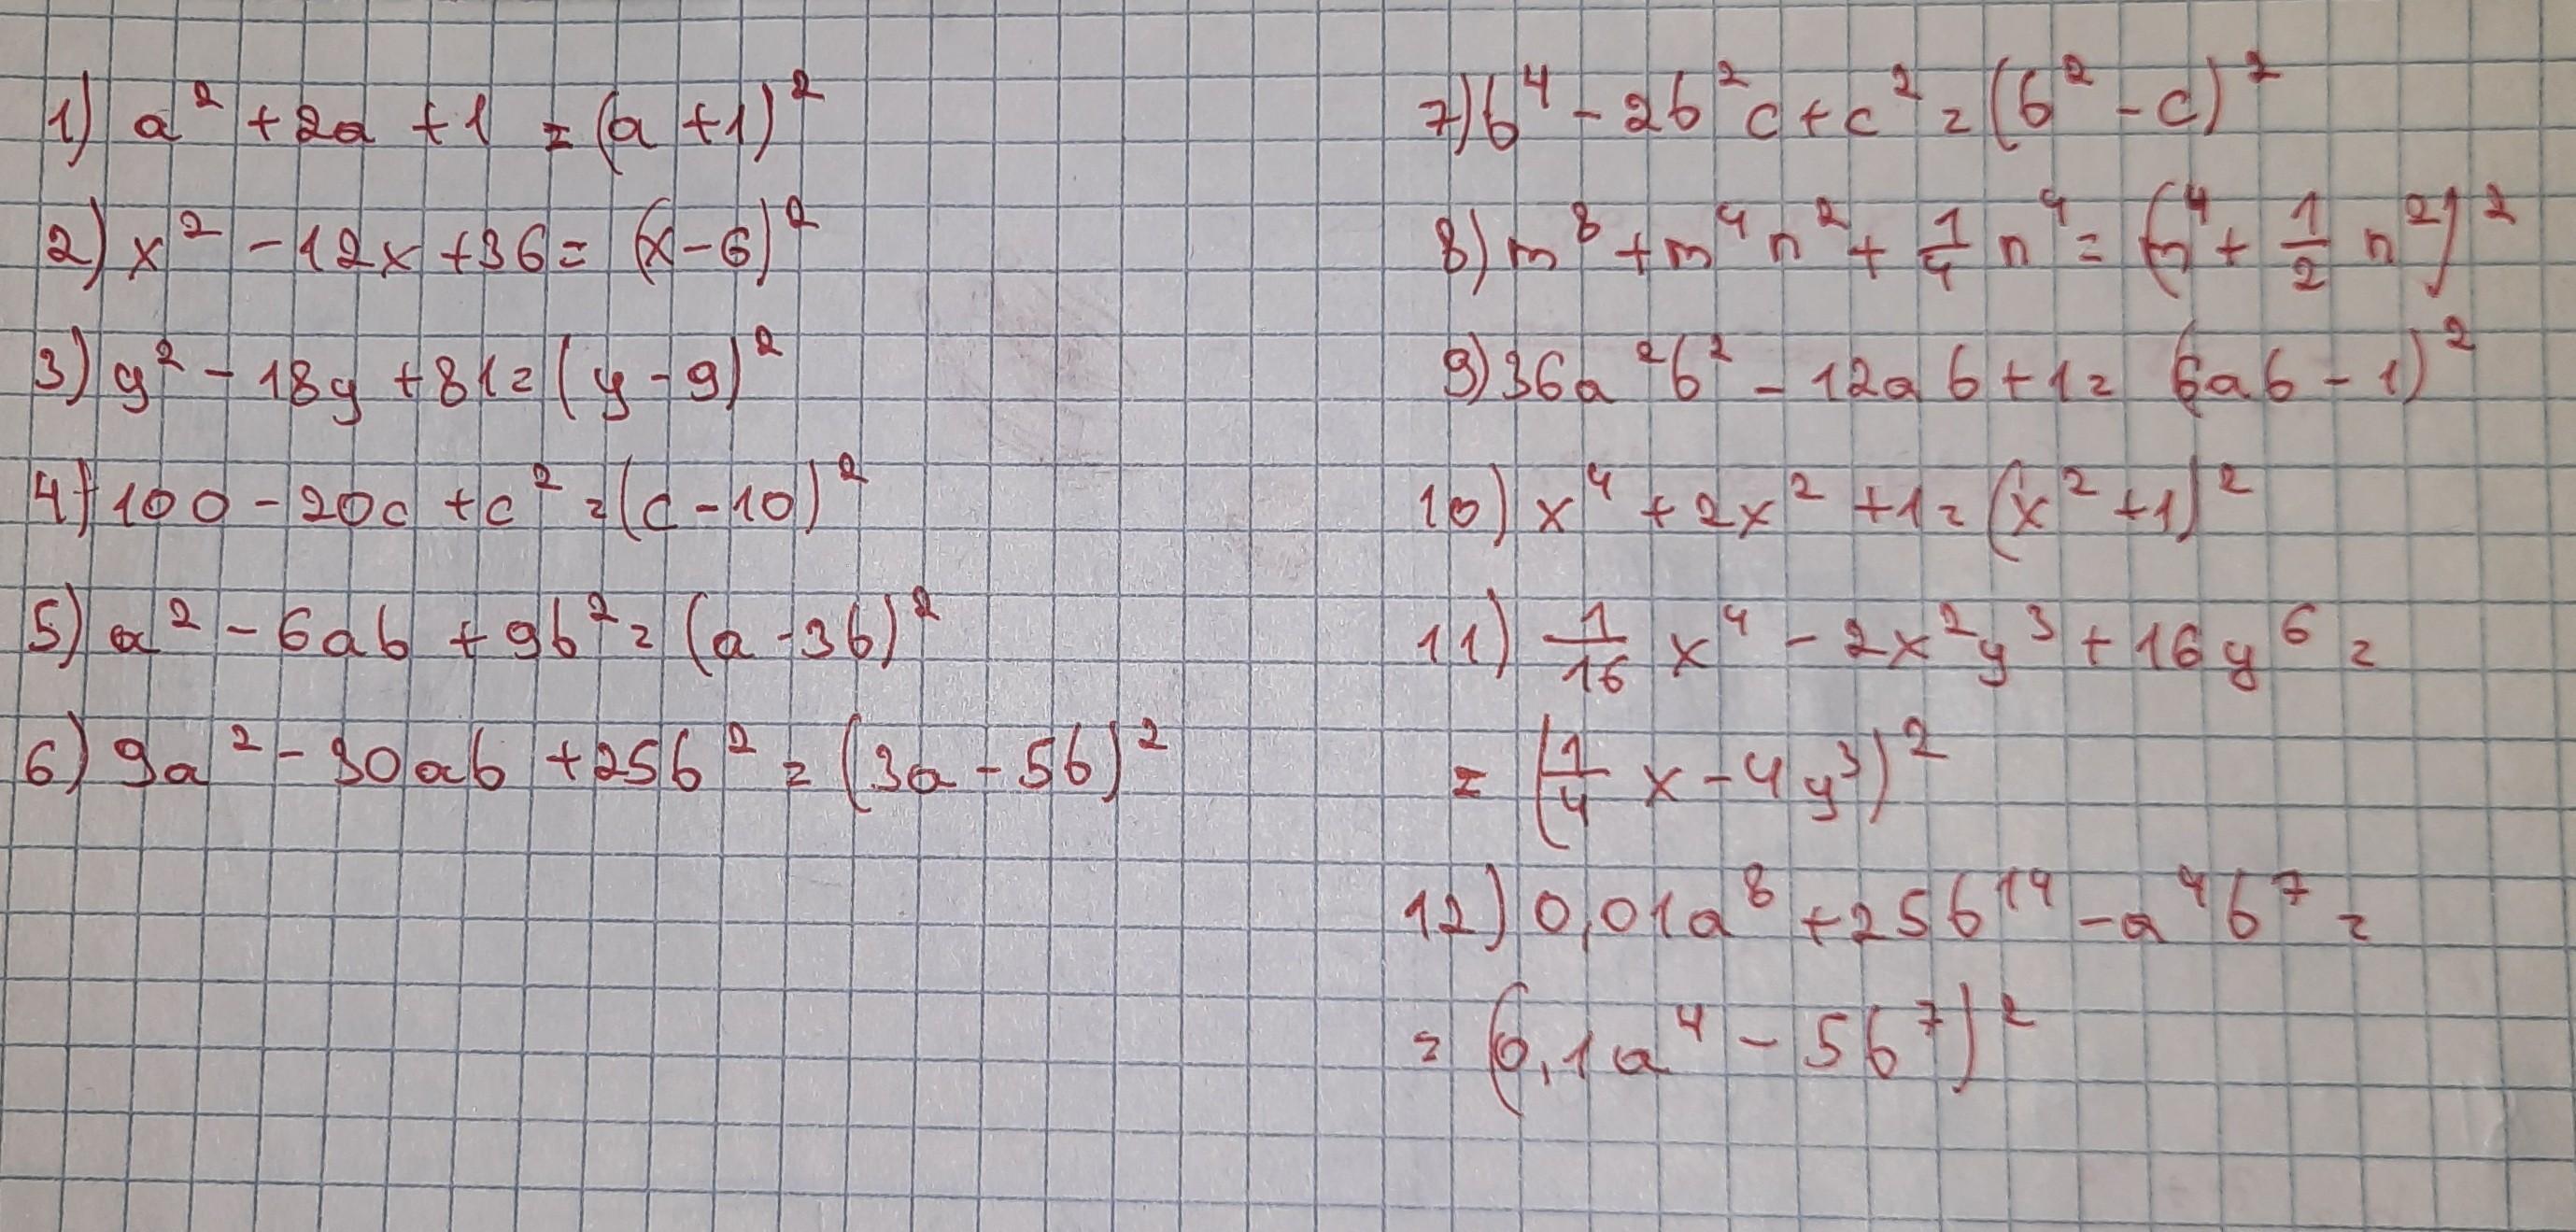 1) a² + 2a + 1 = (a + 1)²
2) x² - 12x + 36 = (x - 6)²
3) y² - 18y + 81 = (y - 9)²
4) 100 - 20c + c² = (c - 10)²
5) a² - 6ab + 9b² = (a - 3b)²
6) 9a² - 30ab + 25b² = (3a - 5b)²
7) b⁴ - 2b²c + c² = (b² - c)²
8) m⁸ + m⁴n² + 1/4 n⁴ = (m⁴ + 1/2 n²)²
9) 36a²b² - 12ab + 1 = (6ab - 1)²
10) x⁴ + 2x² + 1 = (x² + 1)²
11) 1/16 x⁴ - 2x²y³ + 16y⁶ =
= (1/4 x - 4y³)²
12) 0,01a⁸ + 25b¹⁴ - a⁴b⁷ =
= (0,1a⁴ - 5b⁷)²